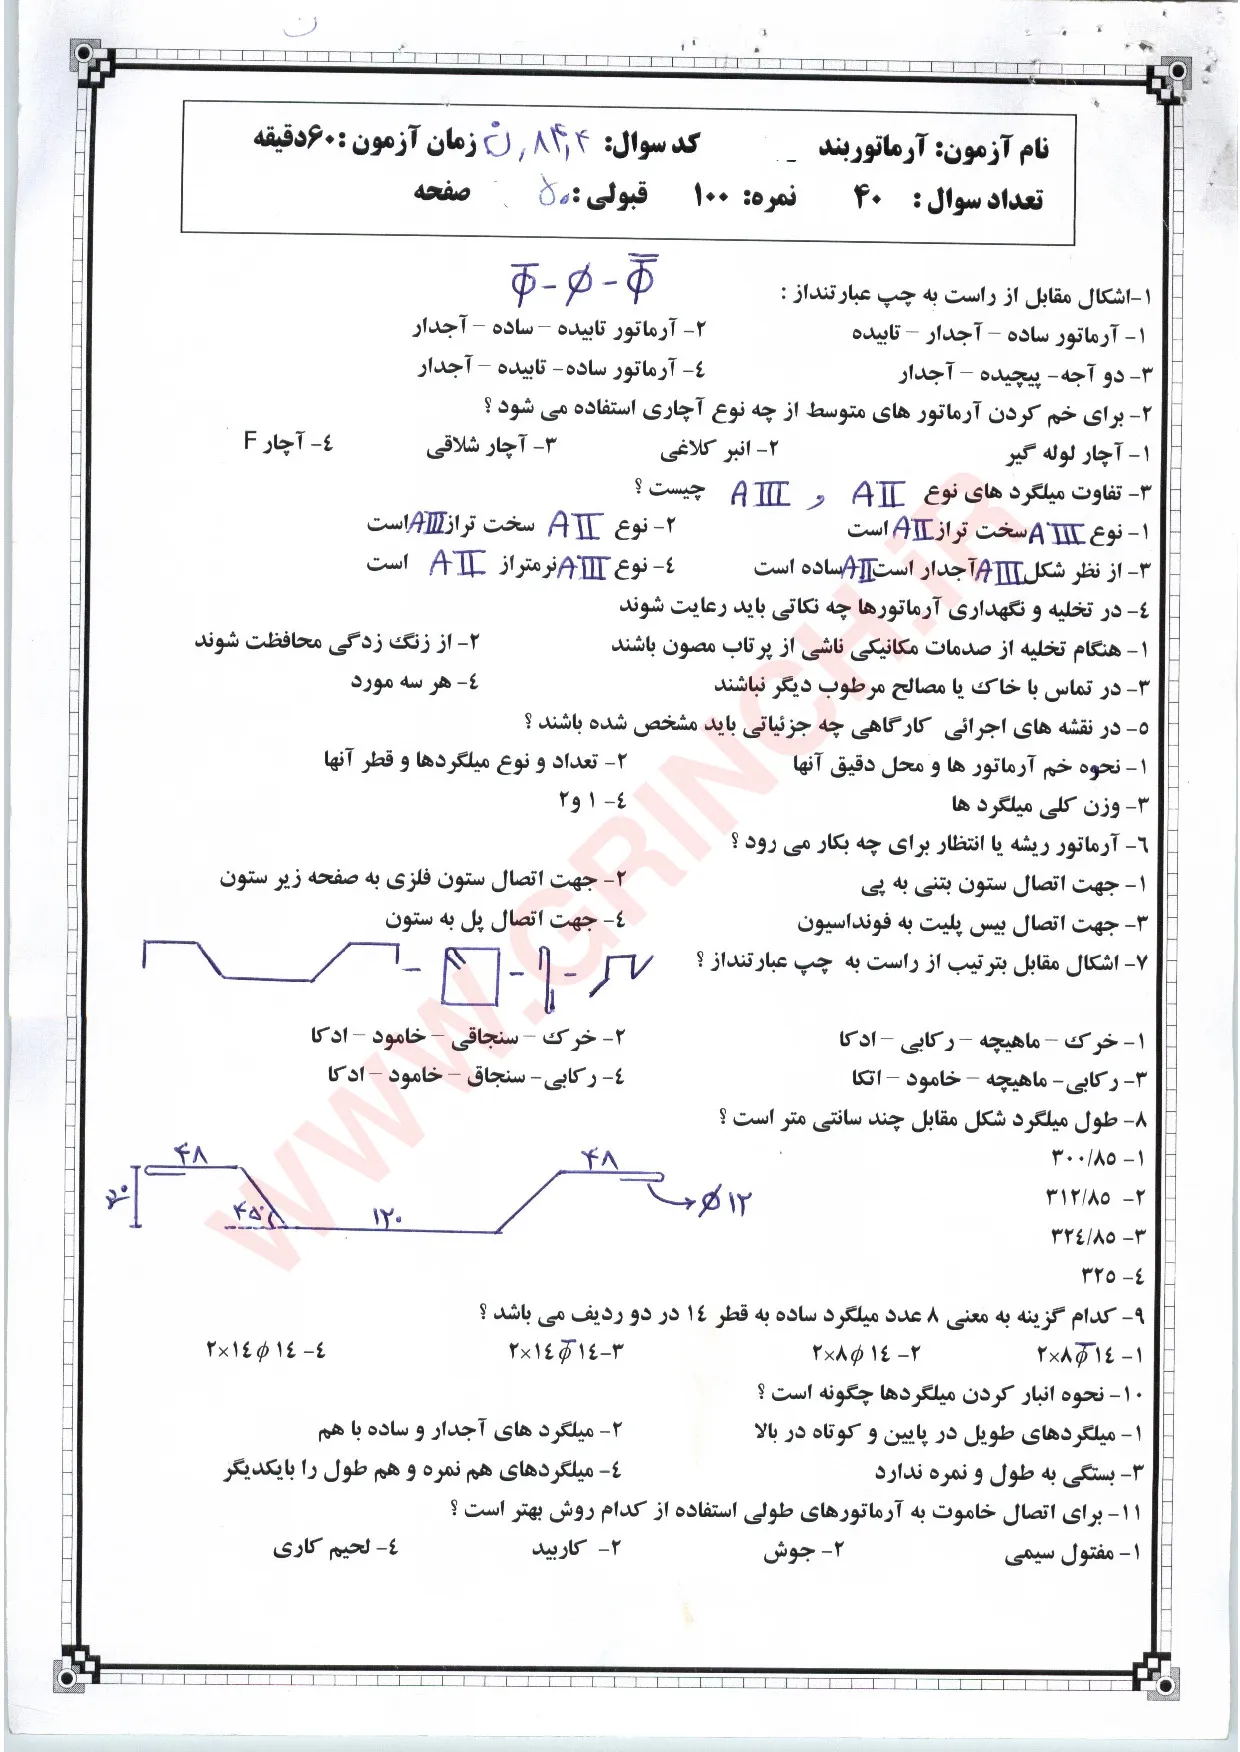 نام آزمون: آرماتوربند کد سوال: ۸۴٫۴٫ن زمان آزمون :۶۰دقیقه
تعداد سوال : ۴۰ نمره: ۱۰۰ قبولی : ۵۰ صفحه
۱-اشکال مقابل از راست به چپ عبارتنداز :
۱- آرماتور ساده – آجدار – تابیده ۲- آرماتور تابیده – ساده – آجدار
۳- دو آجه- پیچیده – آجدار ٤- آرماتور ساده- تابیده – آجدار
۲- برای خم کردن آرماتور های متوسط از چه نوع آچاری استفاده می شود ؟
۱- آچار لوله گیر ۲- انبر کلاغی ۳- آچار شلاقی ٤- آچار F
۳- تفاوت میلگرد های نوع AII و AIII چیست ؟
۱- نوع AIII سخت تراز AII است ۲- نوع AII سخت تراز AIII است
۳- از نظر شکل AIII آجدار است AII ساده است ٤- نوع AIII نرمتراز AII است
٤- در تخلیه و نگهداری آرماتورها چه نکاتی باید رعایت شوند
۱- هنگام تخلیه از صدمات مکانیکی ناشی از پرتاب مصون باشند ۲- از زنگ زدگی محافظت شوند
۳- در تماس با خاك یا مصالح مرطوب دیگر نباشند ٤- هر سه مورد
٥- در نقشه های اجرائی کارگاهی چه جزئیاتی باید مشخص شده باشند ؟
۱- نحوه خم آرماتور ها و محل دقیق آنها ۲- تعداد و نوع میلگردها و قطر آنها
۳- وزن کلی میلگرد ها ٤- ۱ و۲
٦- آرماتور ریشه یا انتظار برای چه بکار می رود ؟
۱- جهت اتصال ستون بتنی به پی ۲- جهت اتصال ستون فلزی به صفحه زیر ستون
۳- جهت اتصال بیس پلیت به فونداسیون ٤- جهت اتصال پل به ستون
۷- اشکال مقابل بترتیب از راست به چپ عبارتنداز ؟
۱- خرك – ماهیچه – رکابی – ادکا ۲- خرك – سنجاقی – خامود – ادکا
۳- رکابی- ماهیچه – خامود – اتکا ٤- رکابی- سنجاق – خامود – ادکا
۸- طول میلگرد شکل مقابل چند سانتی متر است ؟
۱- ۳۰۰/۸٥
۲- ۳۱۲/۸٥
۳- ۳۲٤/۸٥
٤- ۳۲٥
۴۸ ۴۸
۴۵° ۱۲۰ Φ۱۲
۹- کدام گزینه به معنی ۸ عدد میلگرد ساده به قطر ۱٤ در دو ردیف می باشد ؟
۱- ۲×۸φ̅۱٤ ۲- ۲×۸φ۱٤ ۳- ۲×۱٤φ̅۱٤ ٤- ۲×۱٤φ۱٤
۱۰- نحوه انبار کردن میلگردها چگونه است ؟
۱- میلگردهای طویل در پایین و کوتاه در بالا ۲- میلگرد های آجدار و ساده با هم
۳- بستگی به طول و نمره ندارد ٤- میلگردهای هم نمره و هم طول را بایکدیگر
۱۱- برای اتصال خاموت به آرماتورهای طولی استفاده از کدام روش بهتر است ؟
۱- مفتول سیمی ۲- جوش ۲- کاربید ٤- لحیم کاری
WWW.GRINCH.iR